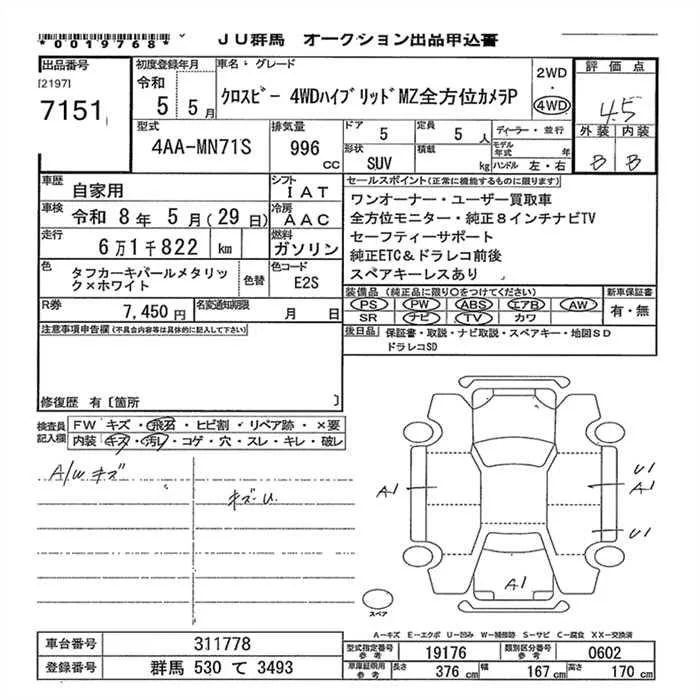 *0019768*
JU群馬 オークション出品申込書
出品番号
[2197]
7151
初度登録年月
令和
5 5月
車名・グレード
クロスビー 4WDハイブリッドMZ全方位カメラP
2WD
・
4WD
評価点
4.5
外装 内装
B B
型式
4AA-MN71S
排気量
996
CC
ドア
5
定員
5人
形状
SUV
積載
kg
ディーラー・並行
モデル年式 年
ハンドル 左・右
車歴
自家用
シフト
IAT
車検
令和 8年 5月(29日)
冷房
AAC
走行
6万1千822 km
燃料
ガソリン
色
タフカーキパールメタリック×ホワイト
色替
色コード
E2S
R券
7,450円
名変通知期限
月 日
セールスポイント(正常に機能するものに限ります)
ワンオーナー・ユーザー買取車
全方位モニター・純正8インチナビTV
セーフティーサポート
純正ETC&ドラレコ前後
スペアキーレスあり
装備品(純正品に限り○をつけてください)
PS PW ABS エアB AW
SR ナビ TV カワ
新車保証書
有・無
後日品 保証書・取説・ナビ取説・スペアキー・地図SD
ドラレコSD
注意事項申告欄(不具合内容等は具体的に記入して下さい)
修復歴 有[箇所 ]
検査員記入欄
FW キズ・飛石・ヒビ割・リペア跡・×要
内装 キズ・汚レ・コゲ・穴・スレ・キレ・破レ
A/W キズ
キズ・U
A1
U1
A1
U1
A1
スペア
A-キズ E-エクボ U-凹み W-補修跡 S-サビ C-腐食 XX-交換済
車台番号 311778
登録番号 群馬 530 て 3493
型式指定番号 参考 19176
類別区分番号 参考 0602
車庫証明用 参考 長さ 376 cm 幅 167 cm 高さ 170 cm